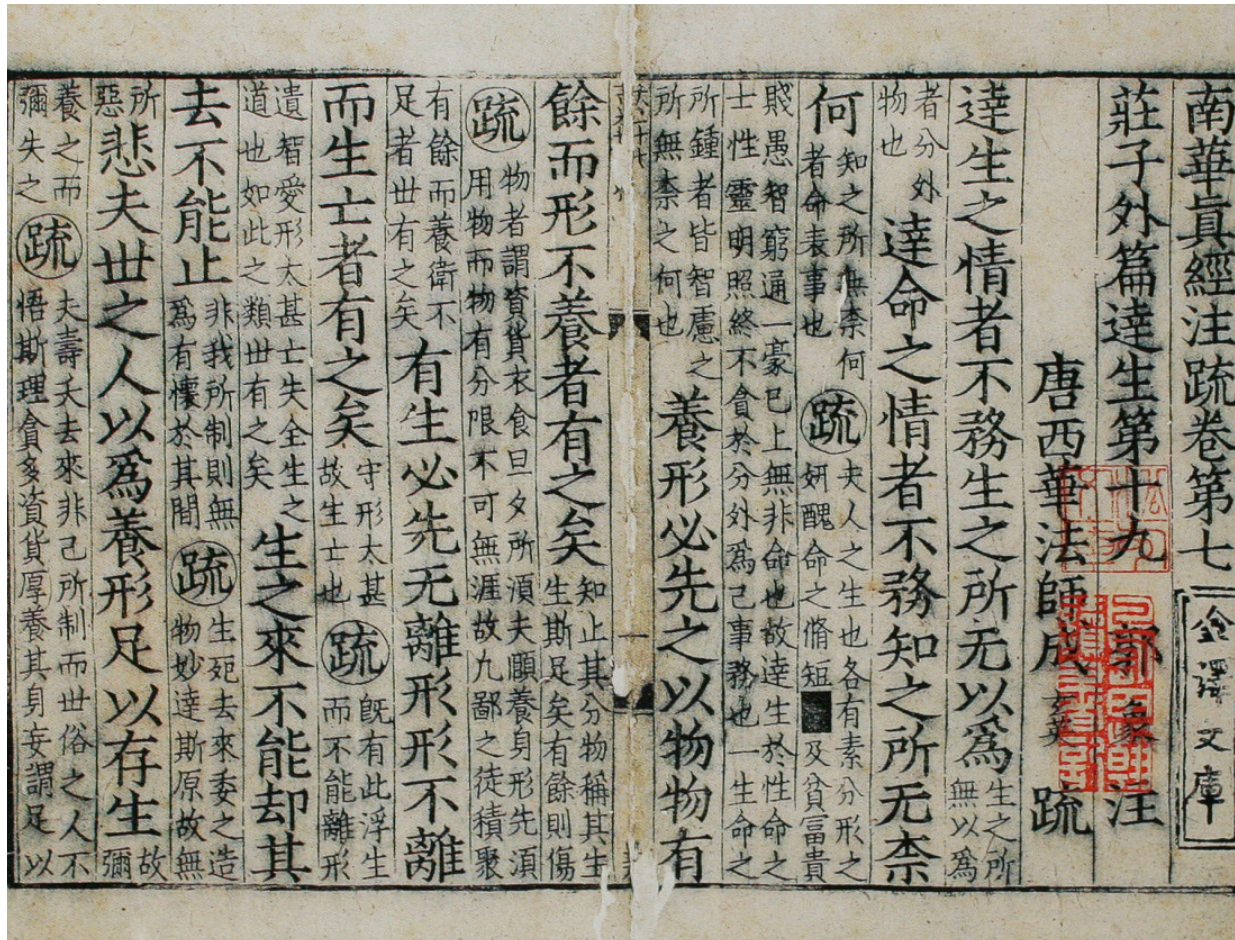 南華眞經注䟽卷第七 金澤文庫
莊子外篇達生第十九 郭象注
唐西華法師成玄英䟽
達生之情者不務生之所无以爲生之所無以爲
者分外物也達命之情者不務知之所无柰
何知之所無柰何者命表事也䟽夫人之生也各有素分形之妍醜命之脩短及貧富貴
賤愚智窮通一豪已上無非命也故達生於性命之士性靈明照終不貪於分外爲己事務也一生命之
所鍾者皆智慮之所無柰之何也養形必先之以物物有
餘而形不養者有之矣知止其分物稱其生生斯足矣有餘則傷
䟽物者謂資貨衣食旦夕所湏夫頋養身形先湏用物而物有分限不可無涯故凡鄙之徒積聚
有餘而養衛不足者世有之矣有生必先无離形形不離
而生亡者有之矣守形太甚故生亡也䟽旣有此浮生而不能離形
遺智愛形太甚亡失全生之道也如此之類世有之矣生之來不能却其
去不能止非我所制則無爲有懷於其間䟽生死去來委之造物妙達斯原故無
所惡悲夫世之人以爲養形足以存生故彌
養之而彌失之䟽夫壽夭去來非己所制而世俗之人不悟斯理貪多資貨厚養其身妄謂足以